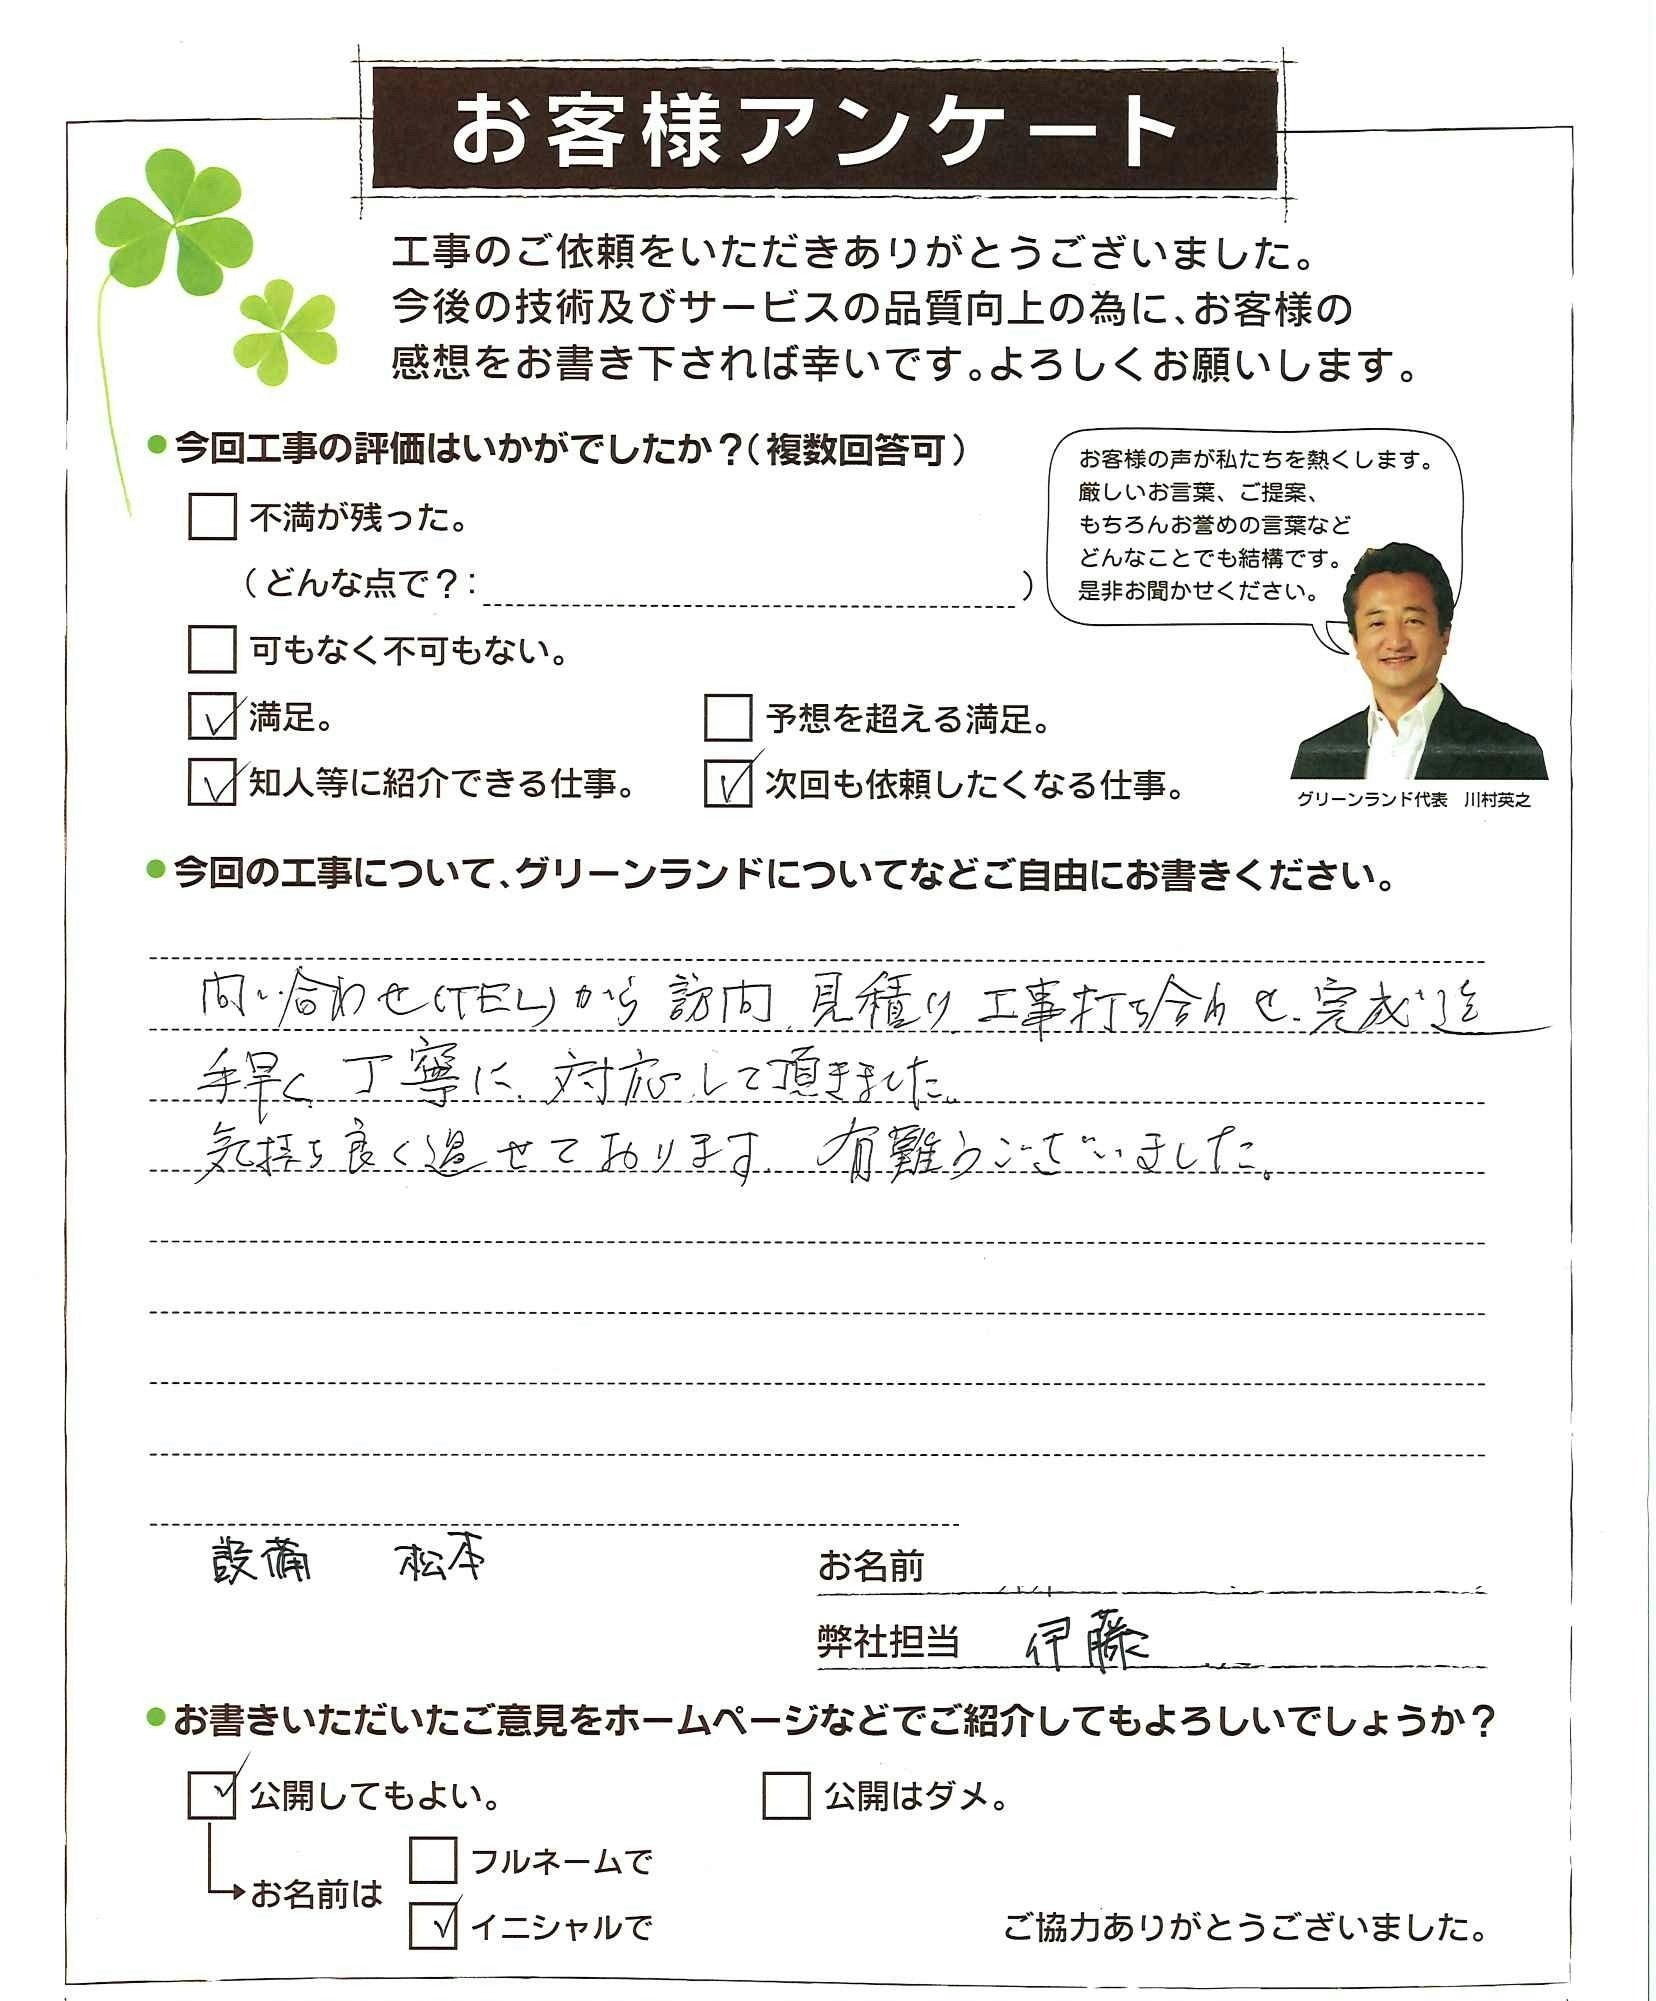 お客様アンケート
工事のご依頼をいただきありがとうございました。
今後の技術及びサービスの品質向上の為に、お客様の
感想をお書き下されば幸いです。よろしくお願いします。
●今回工事の評価はいかがでしたか？（複数回答可）
不満が残った。
（どんな点で？：　）
可もなく不可もない。
満足。
予想を超える満足。
知人等に紹介できる仕事。
次回も依頼したくなる仕事。
お客様の声が私たちを熱くします。
厳しいお言葉、ご提案、
もちろんお誉めの言葉など
どんなことでも結構です。
是非お聞かせください。
グリーンランド代表　川村英之
●今回の工事について、グリーンランドについてなどご自由にお書きください。
問い合わせ(TEL)から訪問、見積り、工事打ち合わせ、完成迄
手早く、丁寧に、対応して頂きました。
気持ち良く過せております。有難うございました。
設備　松本
お名前
弊社担当　伊藤
●お書きいただいたご意見をホームページなどでご紹介してもよろしいでしょうか？
公開してもよい。
公開はダメ。
お名前は
フルネームで
イニシャルで
ご協力ありがとうございました。